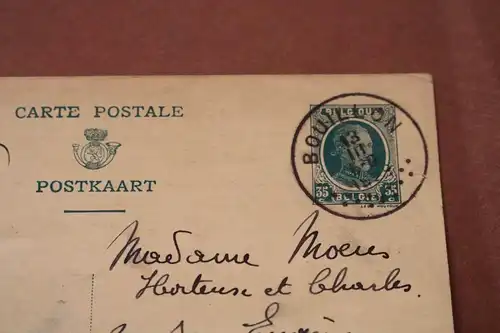 CARTE POSTALE
POSTKAART
BELGIQUE
BOUILLON
13
III
35 BELGIË 35
Madame Moens
Hortense et Charles